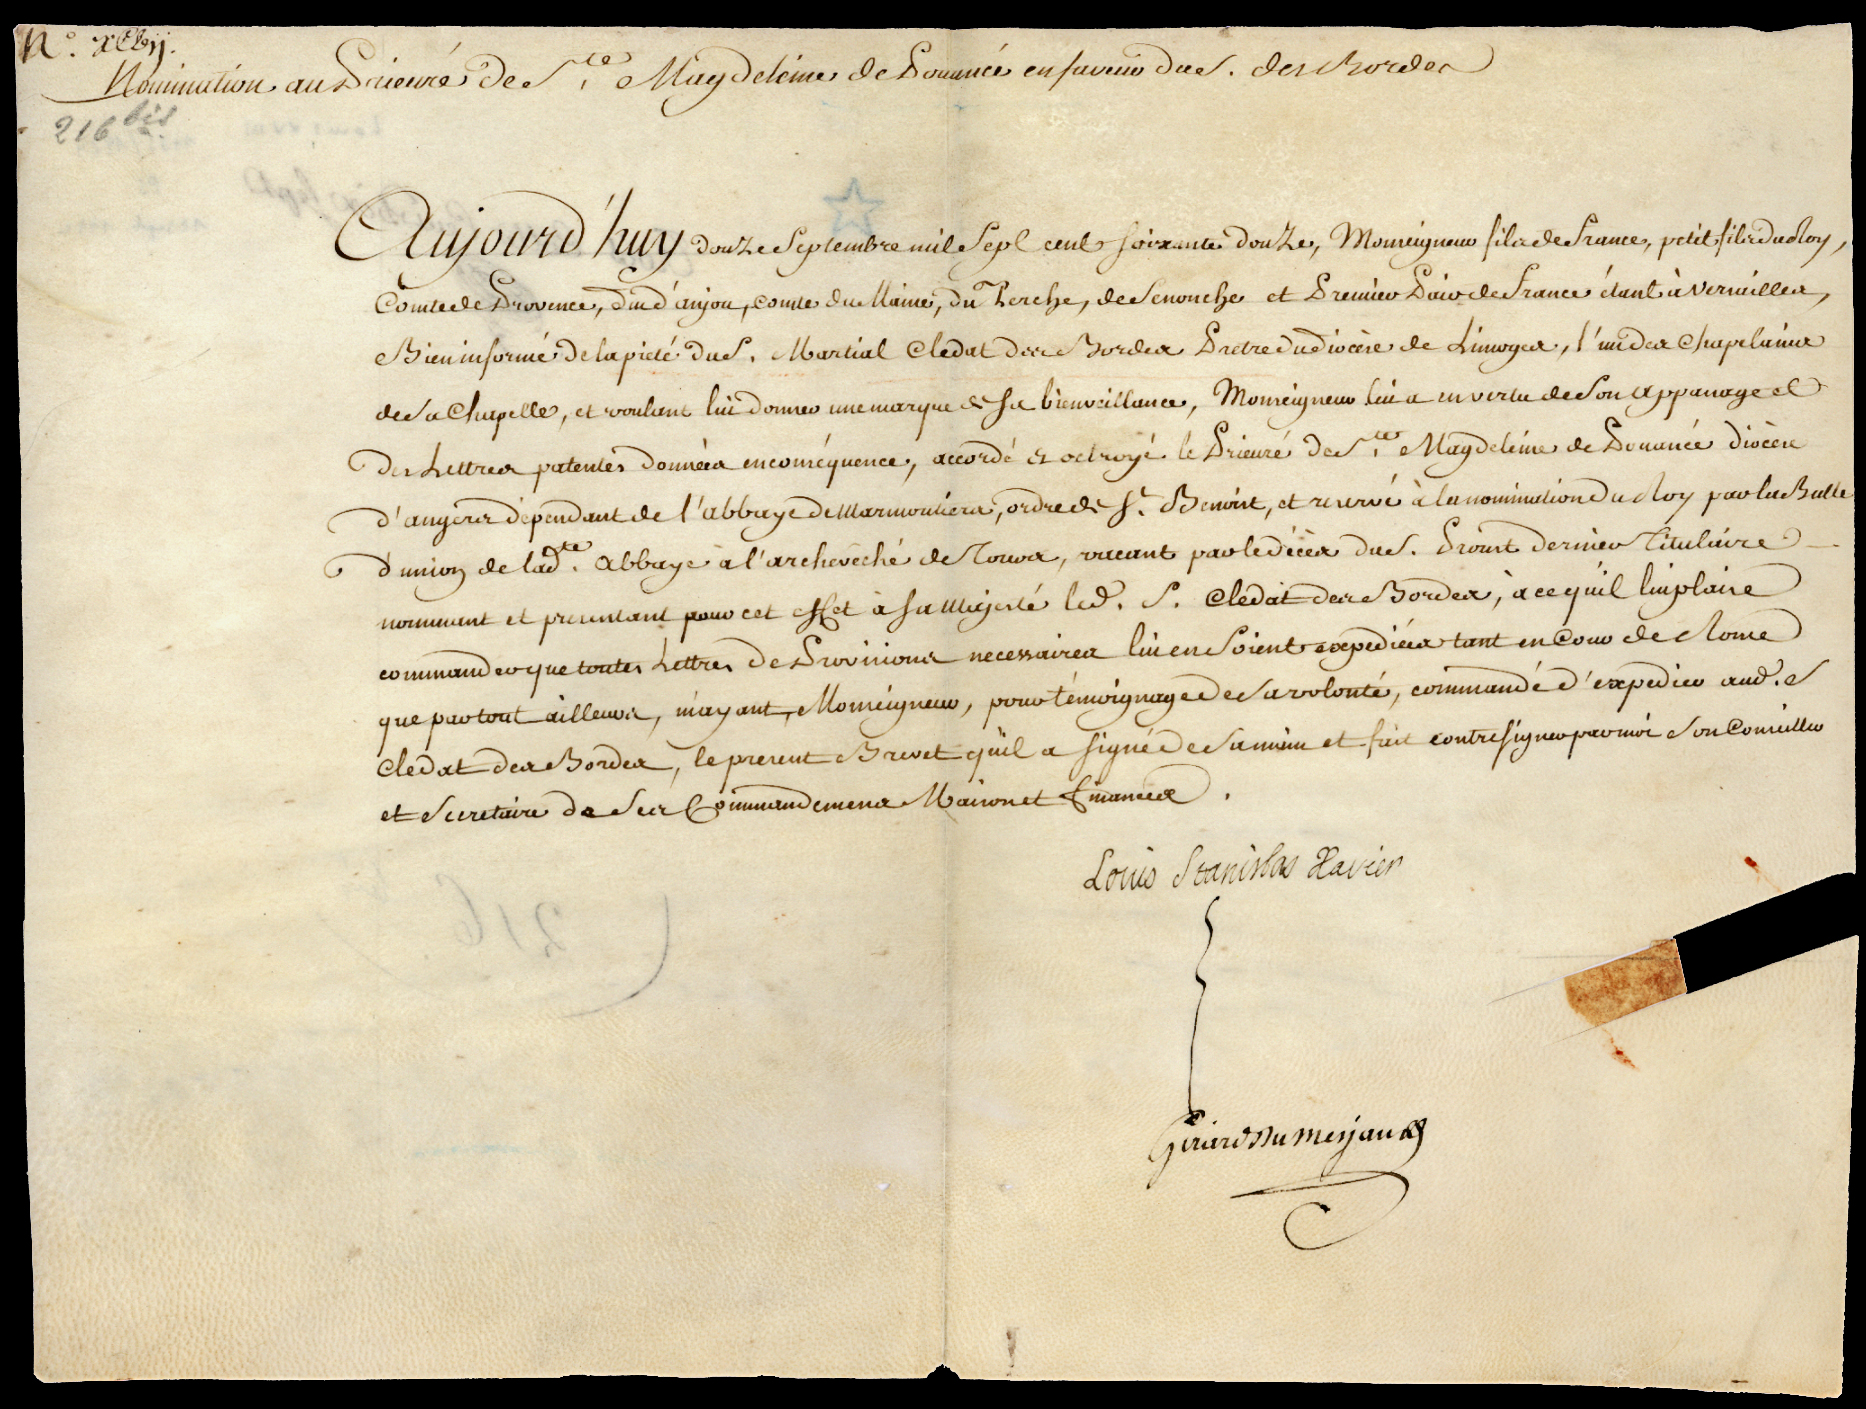 N.º xCvij.
Nomination au Prieuré de S.te Magdeleine de Pouancé en faveur du S. des Bordes
216 bis
Aujourd'huy douze Septembre mil Sept cent soixante douze, Monseigneur fils de France, petit fils du Roy,
Comte de Provence, Duc d'anjou, Comte du Maine, du Perche, de Senonche et Premier Pair de France étant à Versailles,
Bien informé de la pieté du S. Martial Cledat des Bordes Prêtre du diocèse de Limoges, l'un des Chapelains
de Sa Chapelle, et voulant lui donner une marque de Sa bienveillance, Monseigneur lui a en vertu de Son appanage et
des Lettres patentes données en conséquence, accordé et octroyé le Prieuré de S.te Magdeleine de Pouancé diocèse
d'angers dépendant de l'abbaye de Marmoutiers, ordre de S.t Benoist, et reservé à la nomination du Roy par la Bulle
d'union de lad.te Abbaye à l'archevêché de Tours, vacant par le décès du S. Proust dernier Titulaire
nommant et presentant pour cet effet à Sa Majesté led. S. Clédat des Bordes, à ce qu'il lui plaise
commander que toutes Lettres de Provisions necessaires lui en Soient expediées tant en Cour de Rome
que partout ailleurs, m'ayant, Monseigneur, pour témoignage de Sa volonté, commandé d'expedier aud. S
Cledat des Bordes, le present Brevet qu'il a signé de Sa main et fait contresigner par moi Son Conseiller
et Secretaire de Ses Commandemens Maison et finances.
Louis Stanislas Xavier
Girard Du mesjaud
216